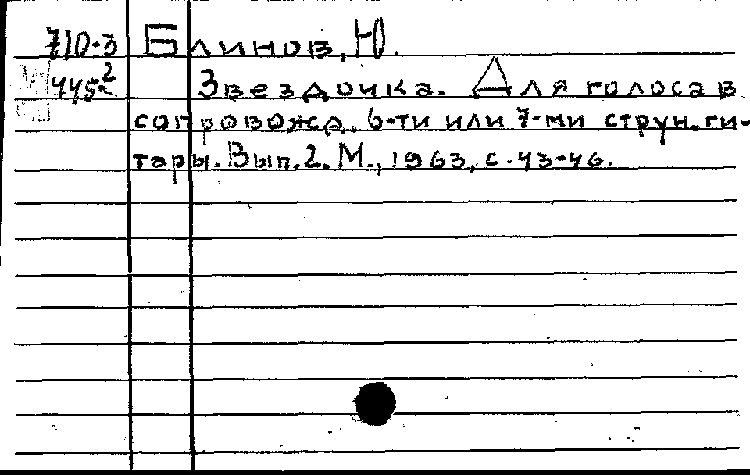 710-3 Блинов, Ю.
445² Звездочка. Для голоса в
сопровожд. 6-ти или 7-ми струн. ги-
тары. Вып. 2. М., 1963, с. 43-46.